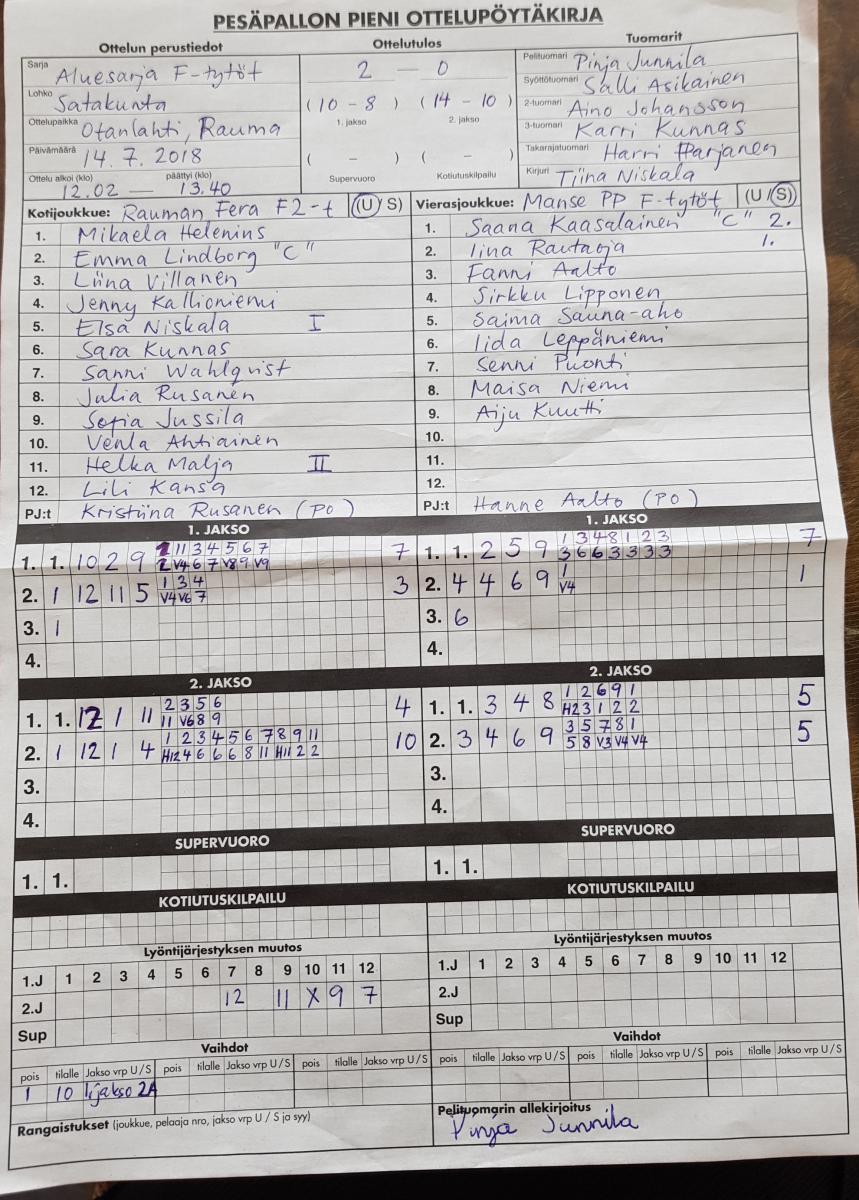 PESÄPALLON PIENI OTTELUPÖYTÄKIRJA
Ottelun perustiedot
Sarja Aluesarja F-tytöt
Lohko Satakunta
Ottelupaikka Otanlahti, Rauma
Päivämäärä 14.7.2018
Ottelu alkoi (klo) päättyi (klo)
12.02 — 13.40
Ottelutulos
2 — 0
(10 - 8) (14 - 10)
1. jakso 2. jakso
( - ) ( - )
Supervuoro Kotiutuskilpailu
Tuomarit
Pelituomari Pinja Junnila
Syöttötuomari Salli Asikainen
2-tuomari Aino Johansson
3-tuomari Karri Kunnas
Takarajatuomari Harri Harjanen
Kirjuri Tiina Niskala
Kotijoukkue: Rauman Fera F2-t (U/S)
1. Mikaela Helenius
2. Emma Lindborg "C"
3. Liina Villanen
4. Jenny Kallioniemi
5. Elsa Niskala I
6. Sara Kunnas
7. Sanni Wahlqvist
8. Julia Rusanen
9. Sofia Jussila
10. Venla Ahtiainen
11. Helka Malja II
12. Lili Kansa
PJ:t Kristiina Rusanen (PO)
Vierasjoukkue: Manse PP F-tytöt (U/S)
1. Saana Kaasalainen "C" 2.
2. Iina Rautaoja 1.
3. Fanni Aalto
4. Sirkku Lipponen
5. Saima Sauna-aho
6. Iida Leppäniemi
7. Senni Puonti
8. Maisa Niemi
9. Aiju Kuutti
10.
11.
12.
PJ:t Hanne Aalto (PO)
1. JAKSO
11 3 4 5 6 7
1. 1. 10 2 9 2 V4 6 7 V8 9 V9 7
1 3 4
2. 1 12 11 5 V4 V6 7 3
3. 1
4.
2. JAKSO
2 3 5 6
1. 1. 12 1 11 11 V6 8 9 4
1 2 3 4 5 6 7 8 9 11
2. 1 12 1 4 H12 4 6 6 6 8 11 H11 2 2 10
3.
4.
SUPERVUORO
1. 1.
KOTIUTUSKILPAILU
1. JAKSO
1 3 4 8 1 2 3
1. 1. 2 5 9 3 6 6 3 3 3 3 7
1
2. 4 4 6 9 V4 1
3. 6
4.
2. JAKSO
1 2 6 9 1
1. 1. 3 4 8 H2 3 1 2 2 5
3 5 7 8 1
2. 3 4 6 9 5 8 V3 V4 V4 5
3.
4.
SUPERVUORO
1. 1.
KOTIUTUSKILPAILU
Lyöntijärjestyksen muutos
1.J 1 2 3 4 5 6 7 8 9 10 11 12
2.J 12 11 X 9 7
Sup
Vaihdot
pois tilalle Jakso vrp U/S pois tilalle Jakso vrp U/S pois tilalle Jakso vrp U/S
1 10 1.jakso 2A
Rangaistukset (joukkue, pelaaja nro, jakso vrp U / S ja syy)
Lyöntijärjestyksen muutos
1.J 1 2 3 4 5 6 7 8 9 10 11 12
2.J
Sup
Vaihdot
pois tilalle Jakso vrp U/S pois tilalle Jakso vrp U/S pois tilalle Jakso vrp U/S
Pelituomarin allekirjoitus
Pinja Junnila